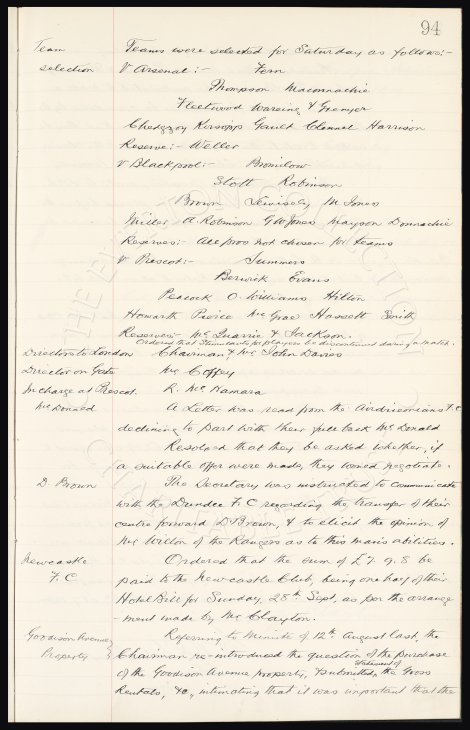 94
Team selection
Teams were selected for Saturday as follows:-
V Arsenal:- Fern
Thompson Maconnachie
Fleetwood Wareing & Grenyer
Chedgzoy Kirsopps Gault Clennel Harrison
Reserve:- Weller
V Blackpool:- Bromilow
Stott Robinson
Brown Lewisely M Jones
Miller A. Robinson GW Jones Mayson Donnachie
Reserves:- All pros not chosen for teams
V Prescot:- Summers
Berwick Evans
Peacock O. Williams Hilton
Howarth Peirce McGrae Hassett Smith
Reserves:- McQuarrie & Jackson.
Ordered that Stimulants for players be discontinued during a match.
Directors to London Chairman & Mr John Davies
Director on Gate Mr Coffey
In charge at Prescot. R. McNamara
McDonald A Letter was read from the Airdrieonians F.C
declining to part with their full back McDonald
Resolved that they be asked whether, if
a suitable offer were made, they would negotiate.
D. Brown The Secretary was instructed to communicate
with the Dundee F.C regarding the transfer of their
centre forward D Brown, & to elicit the opinion of
Mr Wilton of the Rangers as to this man's abilities.
Newcastle F.C Ordered that the sum of £7. 9. 8 be
paid to the Newcastle Club, being one half of their
Hotel Bill for Sunday, 28th Sept, as per the arrange
ment made by Mr Clayton.
Goodison Avenue Property Referring to Minute of 12th August last, the
Chairman re-introduced the question of the purchase
of the Goodison Avenue property, & submitted statement of the Gross
Rentals, &c, intimating that it was important that the
THE EVERTON COLLECTION